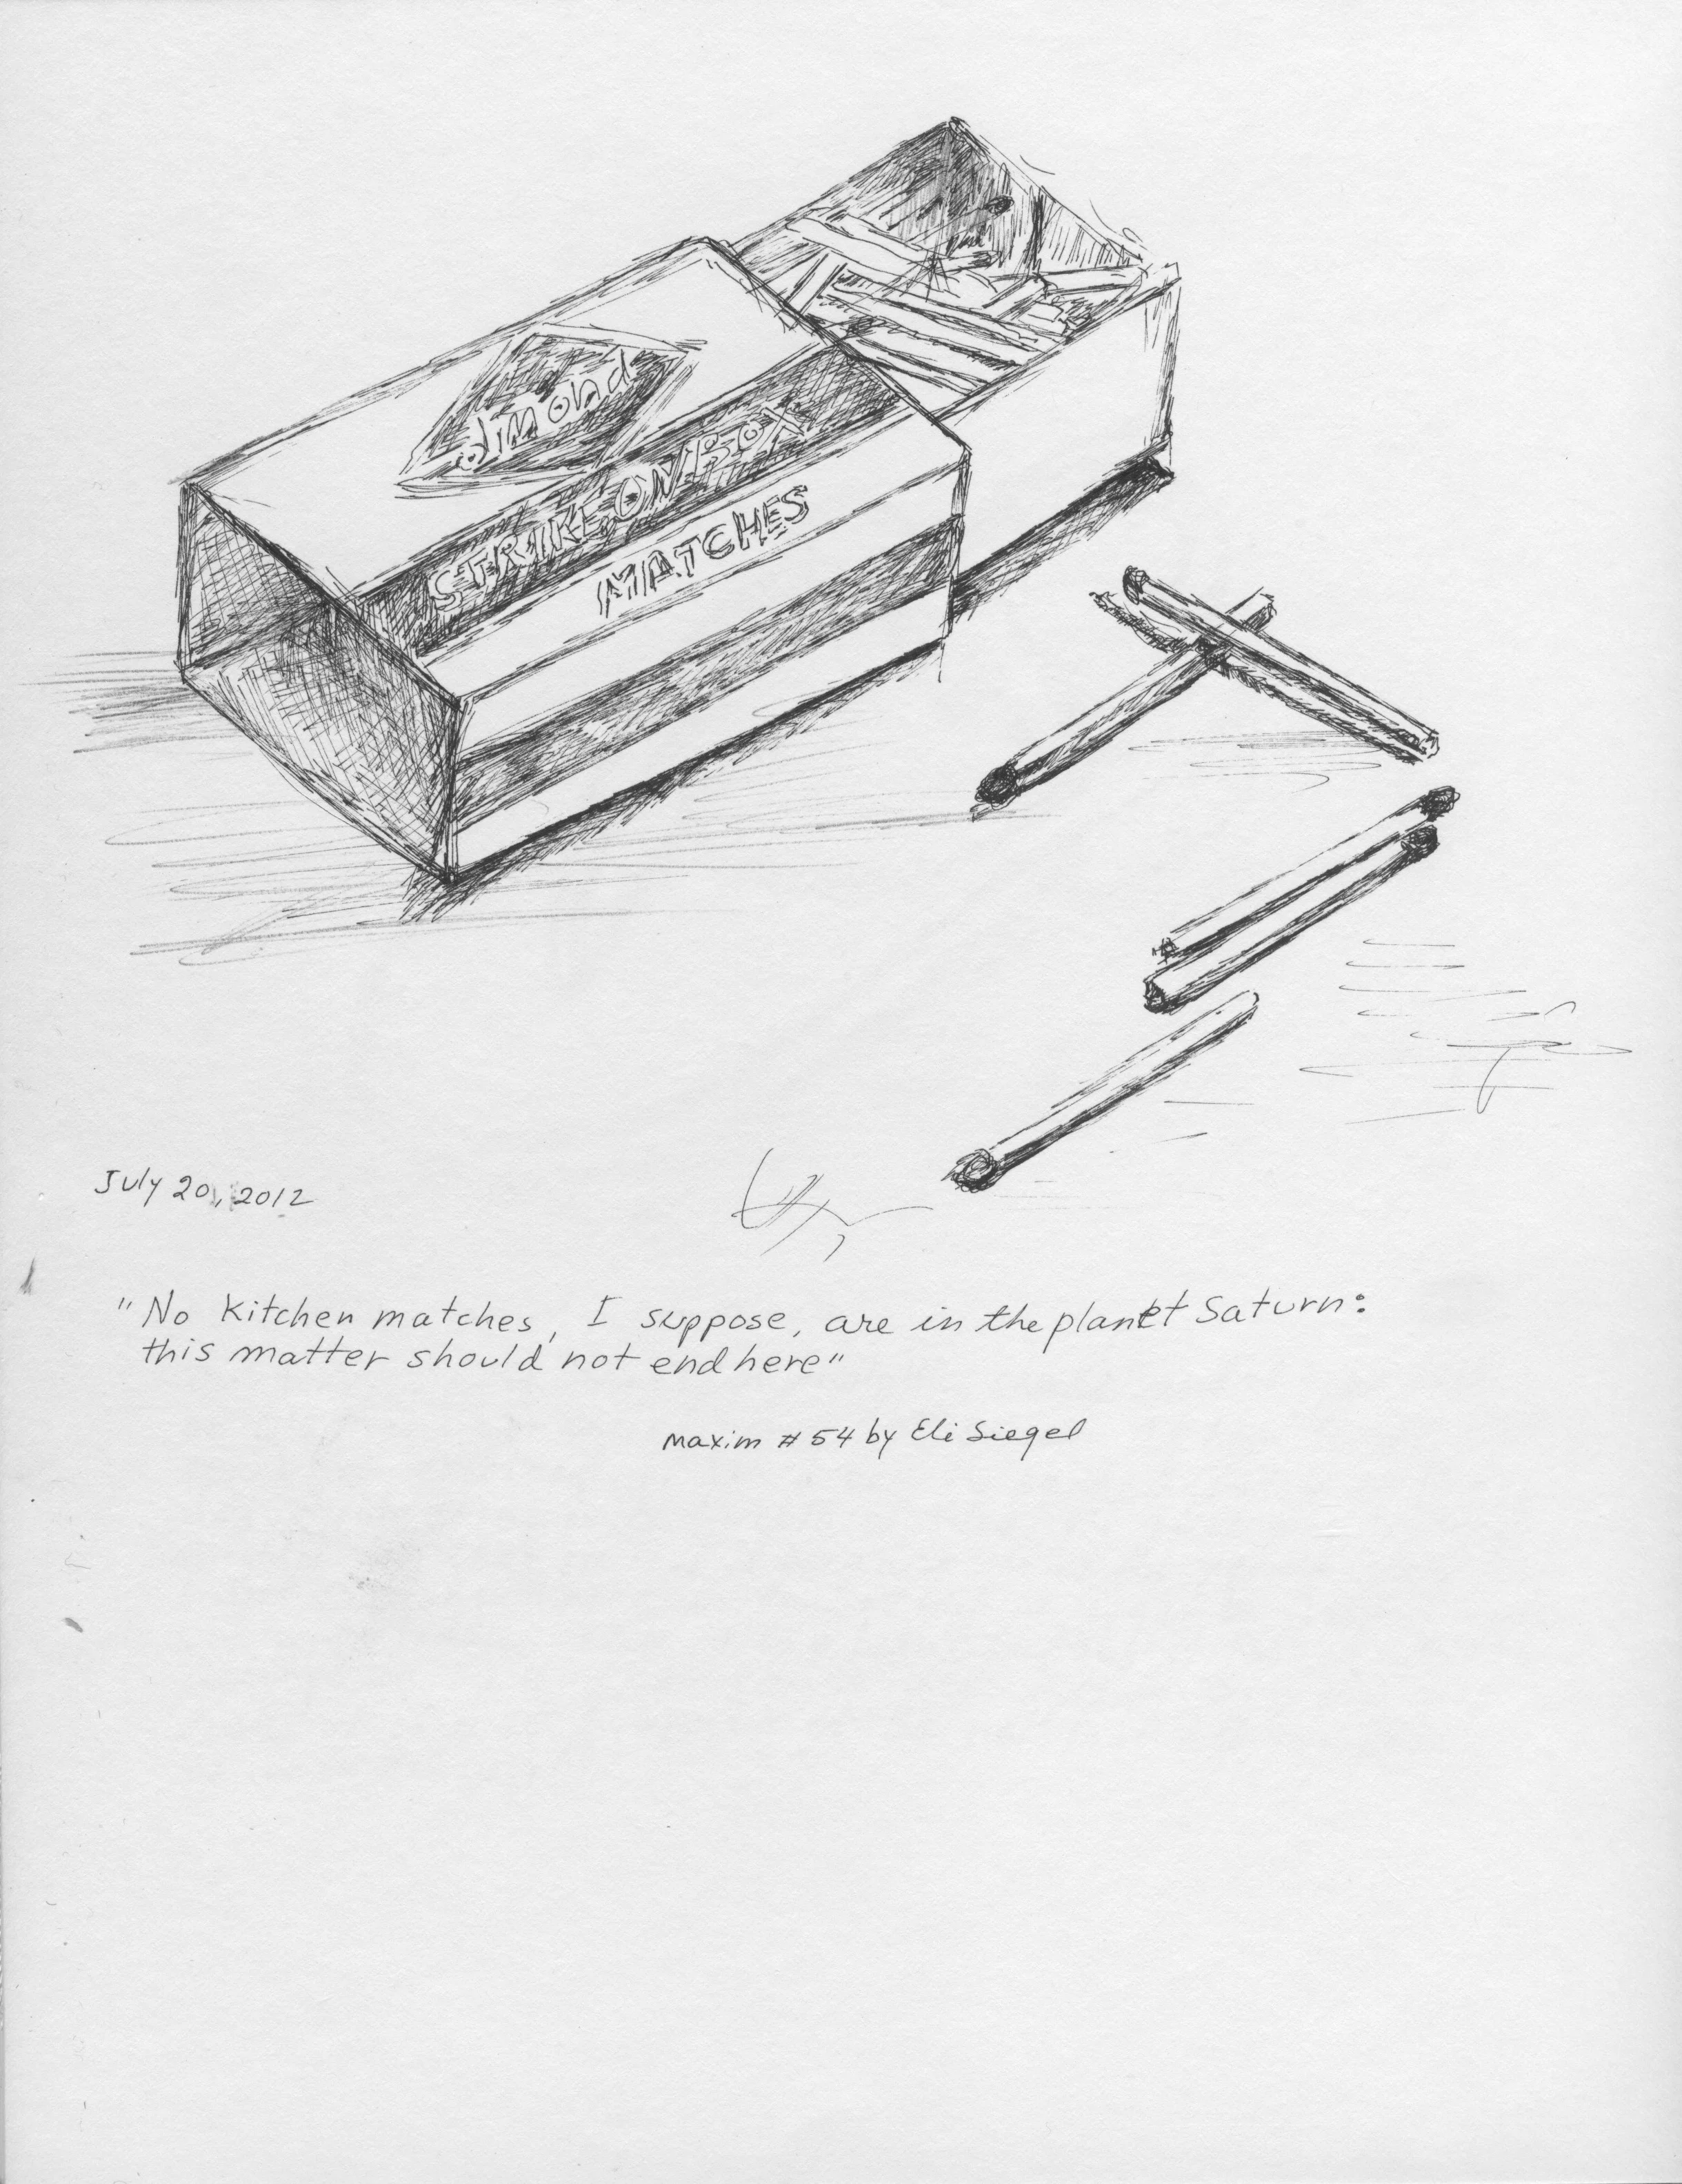 dimond
STRIKE ON BOX
MATCHES
July 20, 2012
"No Kitchen matches, I suppose, are in the planet Saturn:
this matter should not end here"
Maxim # 54 by Eli Siegel